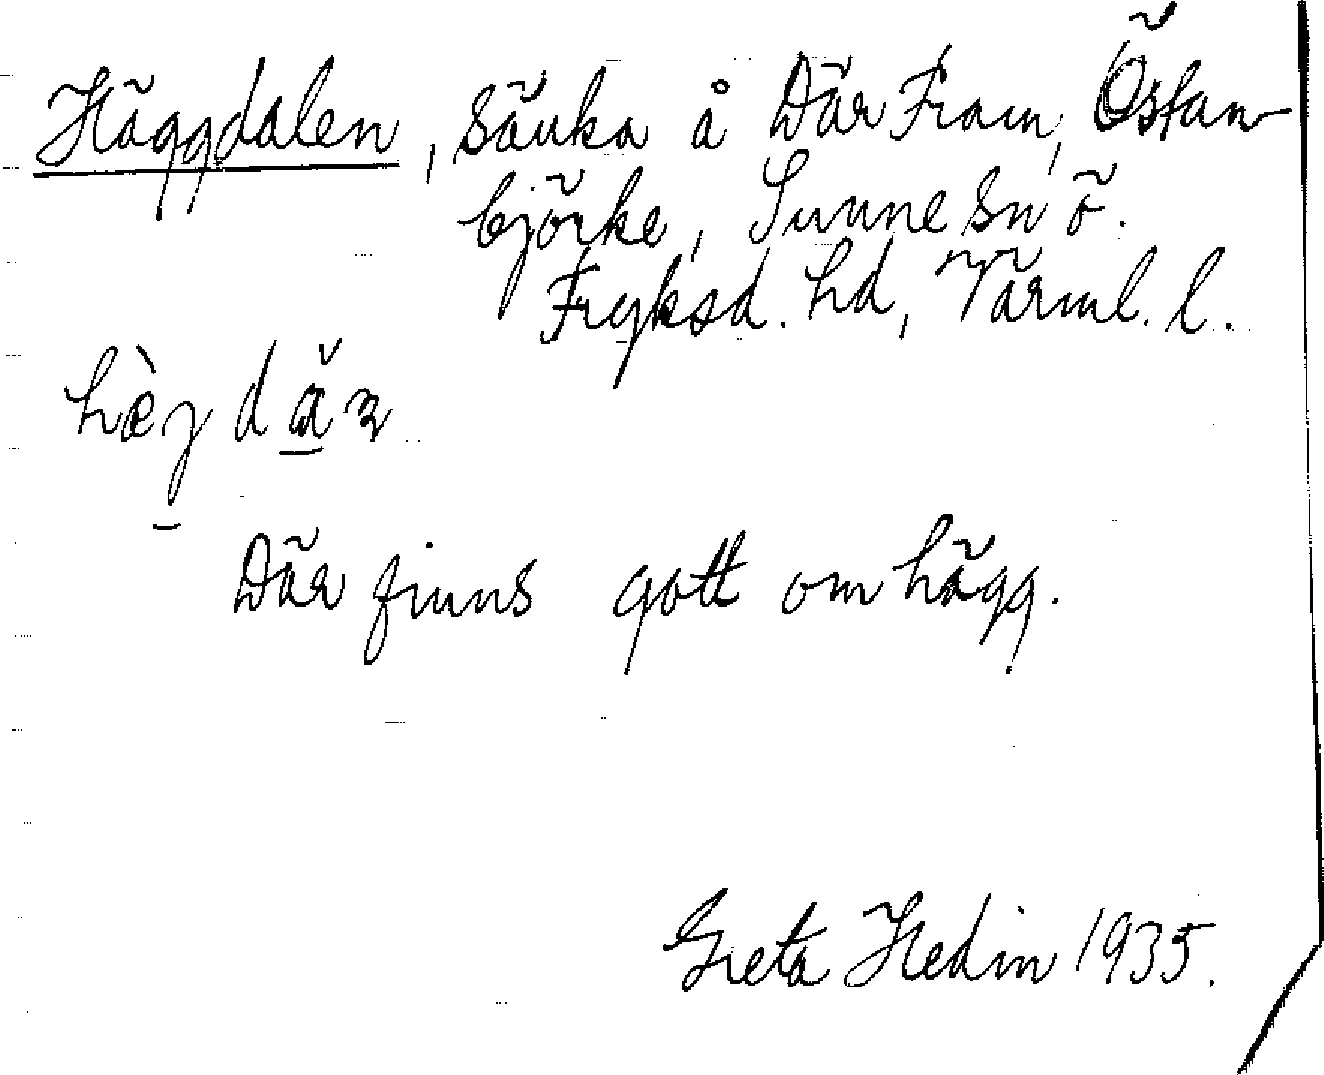 Häggdalen, sänka å Där Fram, Östan-
björke, Sunne sn ö.
Fryksd. hd, Värml. l.
Där finns gott om hägg.
Greta Hedin 1935.